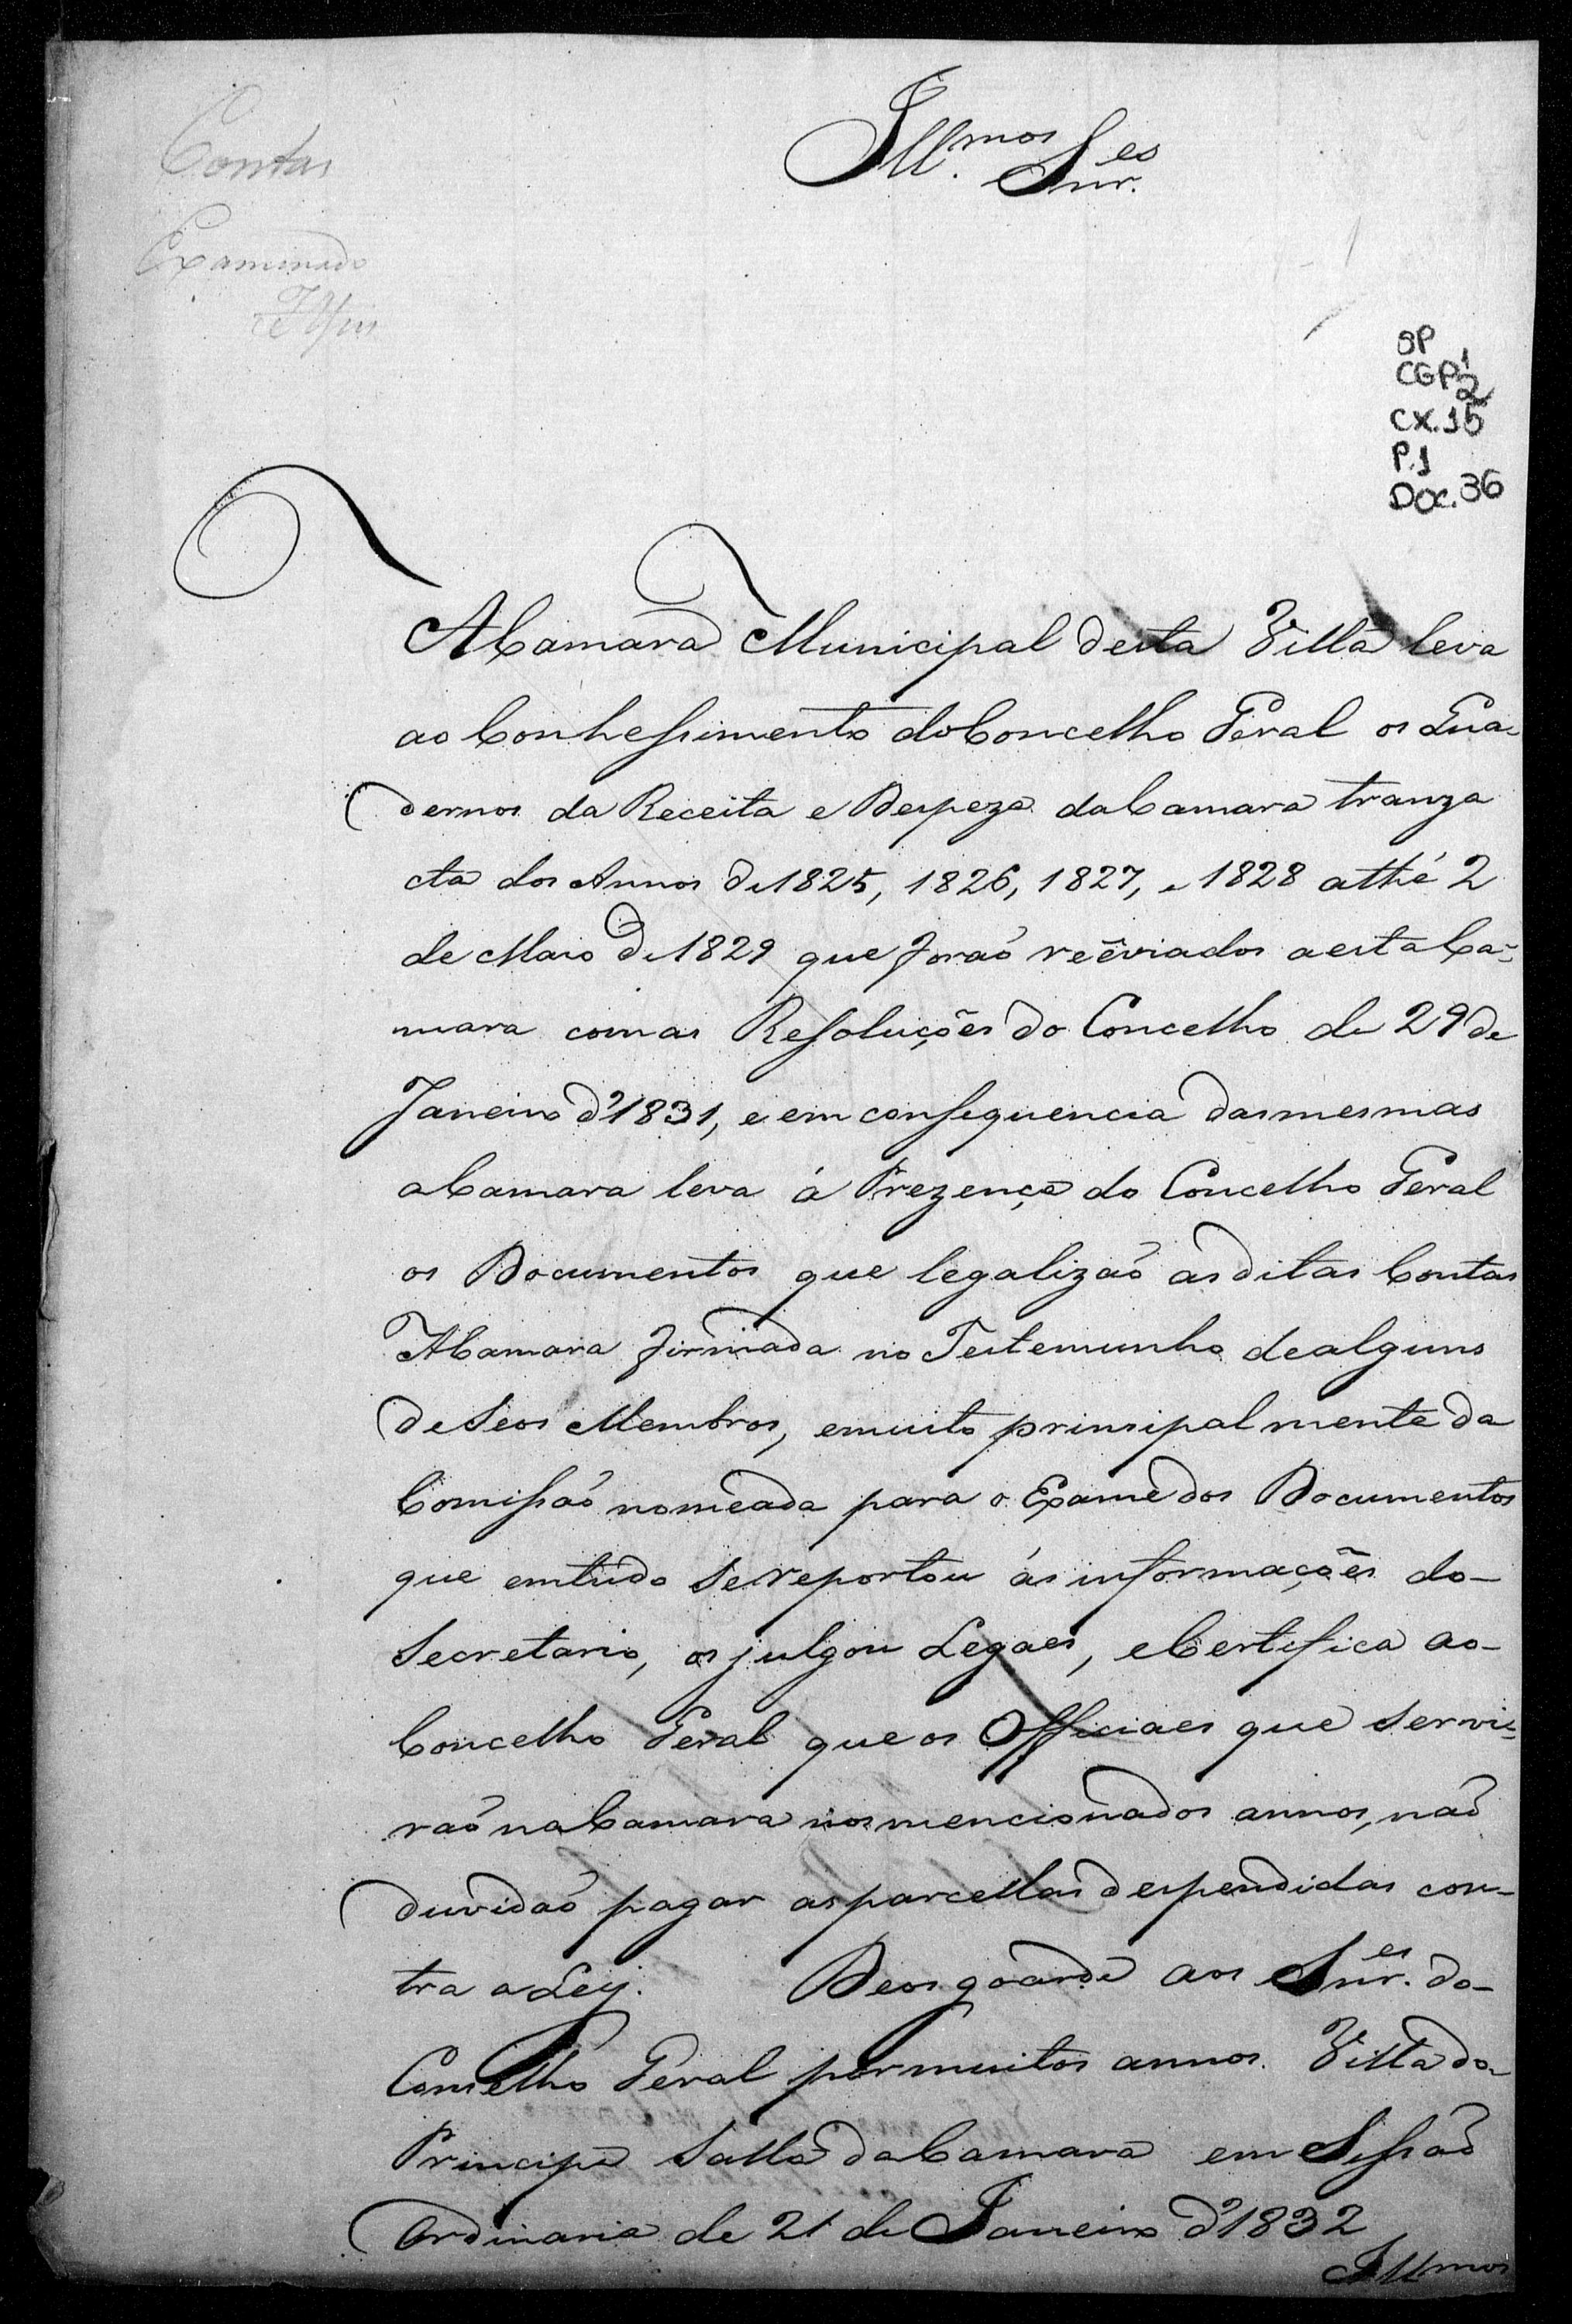 Contas
Examinado
Ill.mos Snr.es
SP
CGP1 2
CX.15
P.1
DOC.36
A Camara Municipal desta Villa leva
ao Conhessimento do Concelho Geral os Qua-
dernos da Receita e Despeza da Camara tranza
cta dos Annos de 1825, 1826, 1827, e 1828 athé 2
de Maio de 1829 que forão reẽviados a esta Ca-
mara com as Resoluções do Concelho de 29 de
Janeiro d'1831, e em consequencia das mesmas
a Camara leva á Prezença do Concelho Geral
os Documentos que legalizão as ditas Contas
A Camara firmada no Testemunho de alguns
de Seos Membros, e muito principalmente da
Comissão nomeada para o Exame dos Documentos
que em tudo se reportou ás informações do-
Secretario, os julgou Legaes, e Certifica ao-
Concelho Geral que os Officiaes que servi-
rão na Camara nos mencionados annos, não
duvidão pagar as parcellas despendidas con-
tra a Ley. Deos goarde aos Snr.es do-
Conselho Geral por muitos annos. Villa do-
Principe Salla da Camara em Sessão
Ordinaria de 21 de Janeiro d'1832
Ill.mos